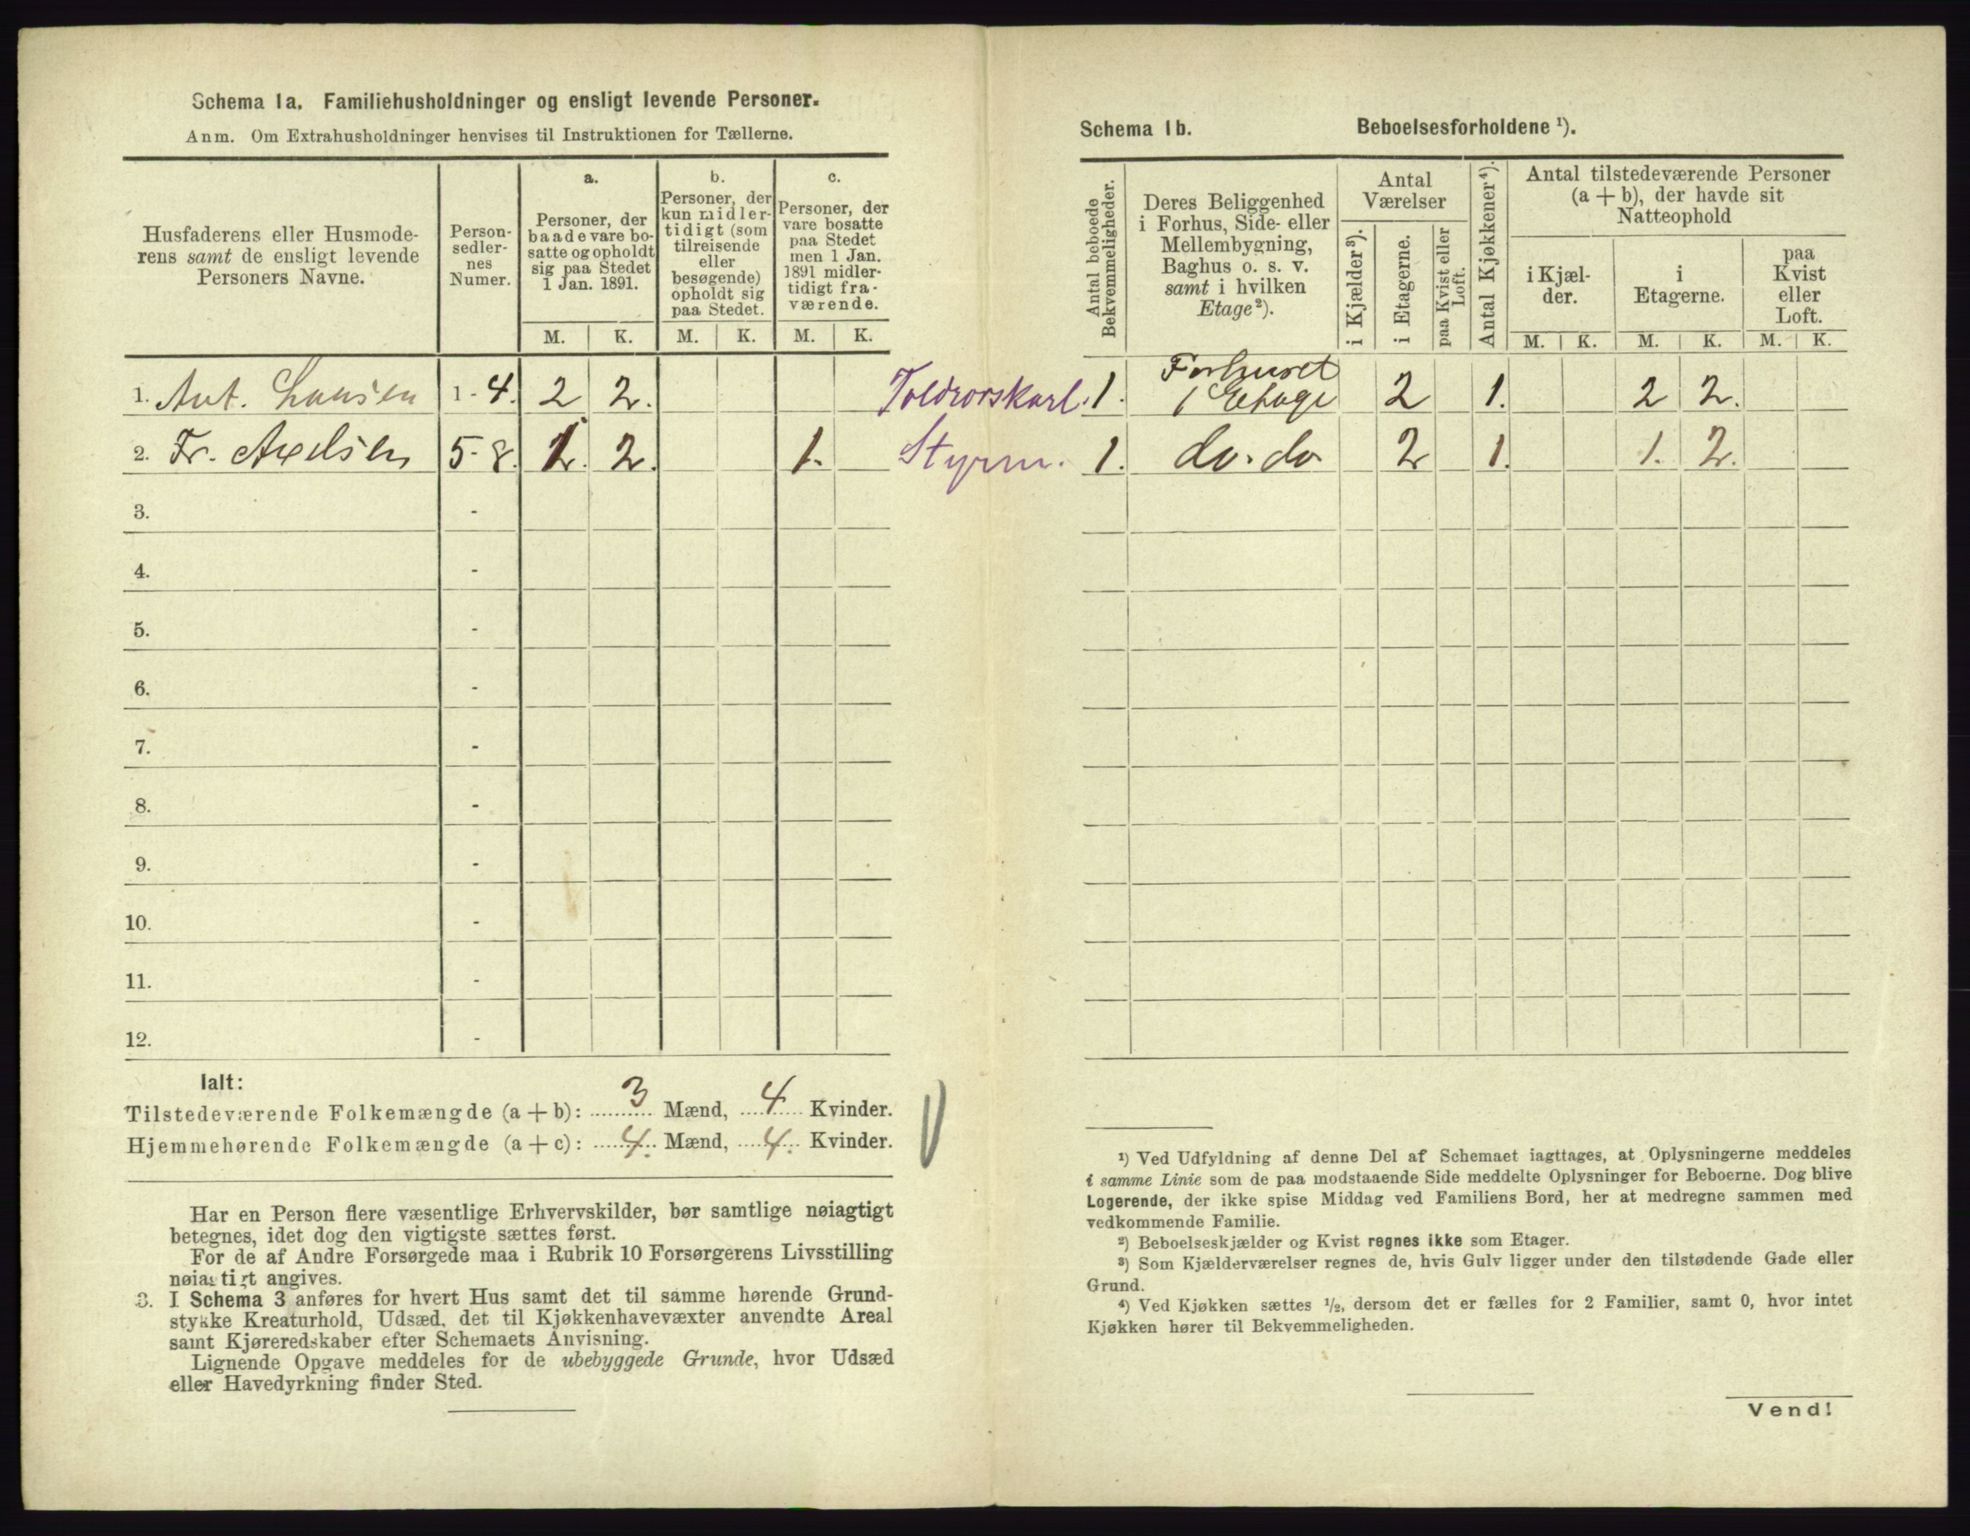 Schema 1a. Familiehusholdninger og ensligt levende Personer.
Anm. Om Extrahusholdninger henvises til Instruktionen for Tællerne.
Husfaderens eller Husmode-
rens samt de ensligt levende
Personers Navne.
Person-
sedler-
nes
Numer.
a.
Personer, der
baade vare bo-
satte og opholdt
sig paa Stedet
1 Jan. 1891.
b.
Personer, der
kun midler-
tidigt (som
tilreisende
eller
besøgende)
opholdt sig
paa Stedet.
c.
Personer, der
vare bosatte
paa Stedet
men 1 Jan.
1891 midler-
tidigt fra-
værende.
M. K. M. K. M. K.
1. Ant. 1 - 4. 2 2. Toldrorskarl.
2. Fr. Axelsen 5 - 8. 1. 2. 1. Styrm.
3. -
4. -
5. -
6. -
7. -
8. -
9. -
10. -
11. -
12. -
Ialt:
Tilstedeværende Folkemængde (a + b): 3 Mænd, 4 Kvinder.
Hjemmehørende Folkemængde (a + c): 4. Mænd, 4. Kvinder.
Har en Person flere væsentlige Erhvervskilder, bør samtlige nøiagtigt
betegnes, idet dog den vigtigste sættes først.
For de af Andre Forsørgede maa i Rubrik 10 Forsørgerens Livsstilling
nøiagtigt angives.
3. I Schema 3 anføres for hvert Hus samt det til samme hørende Grund-
stykke Kreaturhold, Udsæd, det til Kjøkkenhavevæxter anvendte Areal
samt Kjøreredskaber efter Schemaets Anvisning.
Lignende Opgave meddeles for de ubebyggede Grunde, hvor Udsæd
eller Havedyrkning finder Sted.
Schema 1b. Beboelsesforholdene ¹).
Antal beboede
Bekvemmeligheder.
Deres Beliggenhed
i Forhus, Side- eller
Mellembygning,
Baghus o. s. v.
samt i hvilken
Etage²).
Antal
Værelser
i Kjælder³).
i Etagerne.
paa Kvist eller
Loft.
Antal Kjøkkener⁴).
Antal tilstedeværende Personer
(a + b), der havde sit
Natteophold
i Kjæl-
der.
i
Etagerne.
paa
Kvist
eller
Loft.
M. K. M. K. M. K.
1. Forhuset
1 Etage 2 1. 2 2.
1. do. do 2 1. 1. 2.
¹) Ved Udfyldning af denne Del af Schemaet iagttages, at Oplysningerne meddeles
i samme Linie som de paa modstaaende Side meddelte Oplysninger for Beboerne. Dog blive
Logerende, der ikke spise Middag ved Familiens Bord, her at medregne sammen med
vedkommende Familie.
²) Beboelseskjælder og Kvist regnes ikke som Etager.
³) Som Kjælderværelser regnes de, hvis Gulv ligger under den tilstødende Gade eller
Grund.
⁴) Ved Kjøkken sættes ½, dersom det er fælles for 2 Familier, samt 0, hvor intet
Kjøkken hører til Bekvemmeligheden.
Vend!